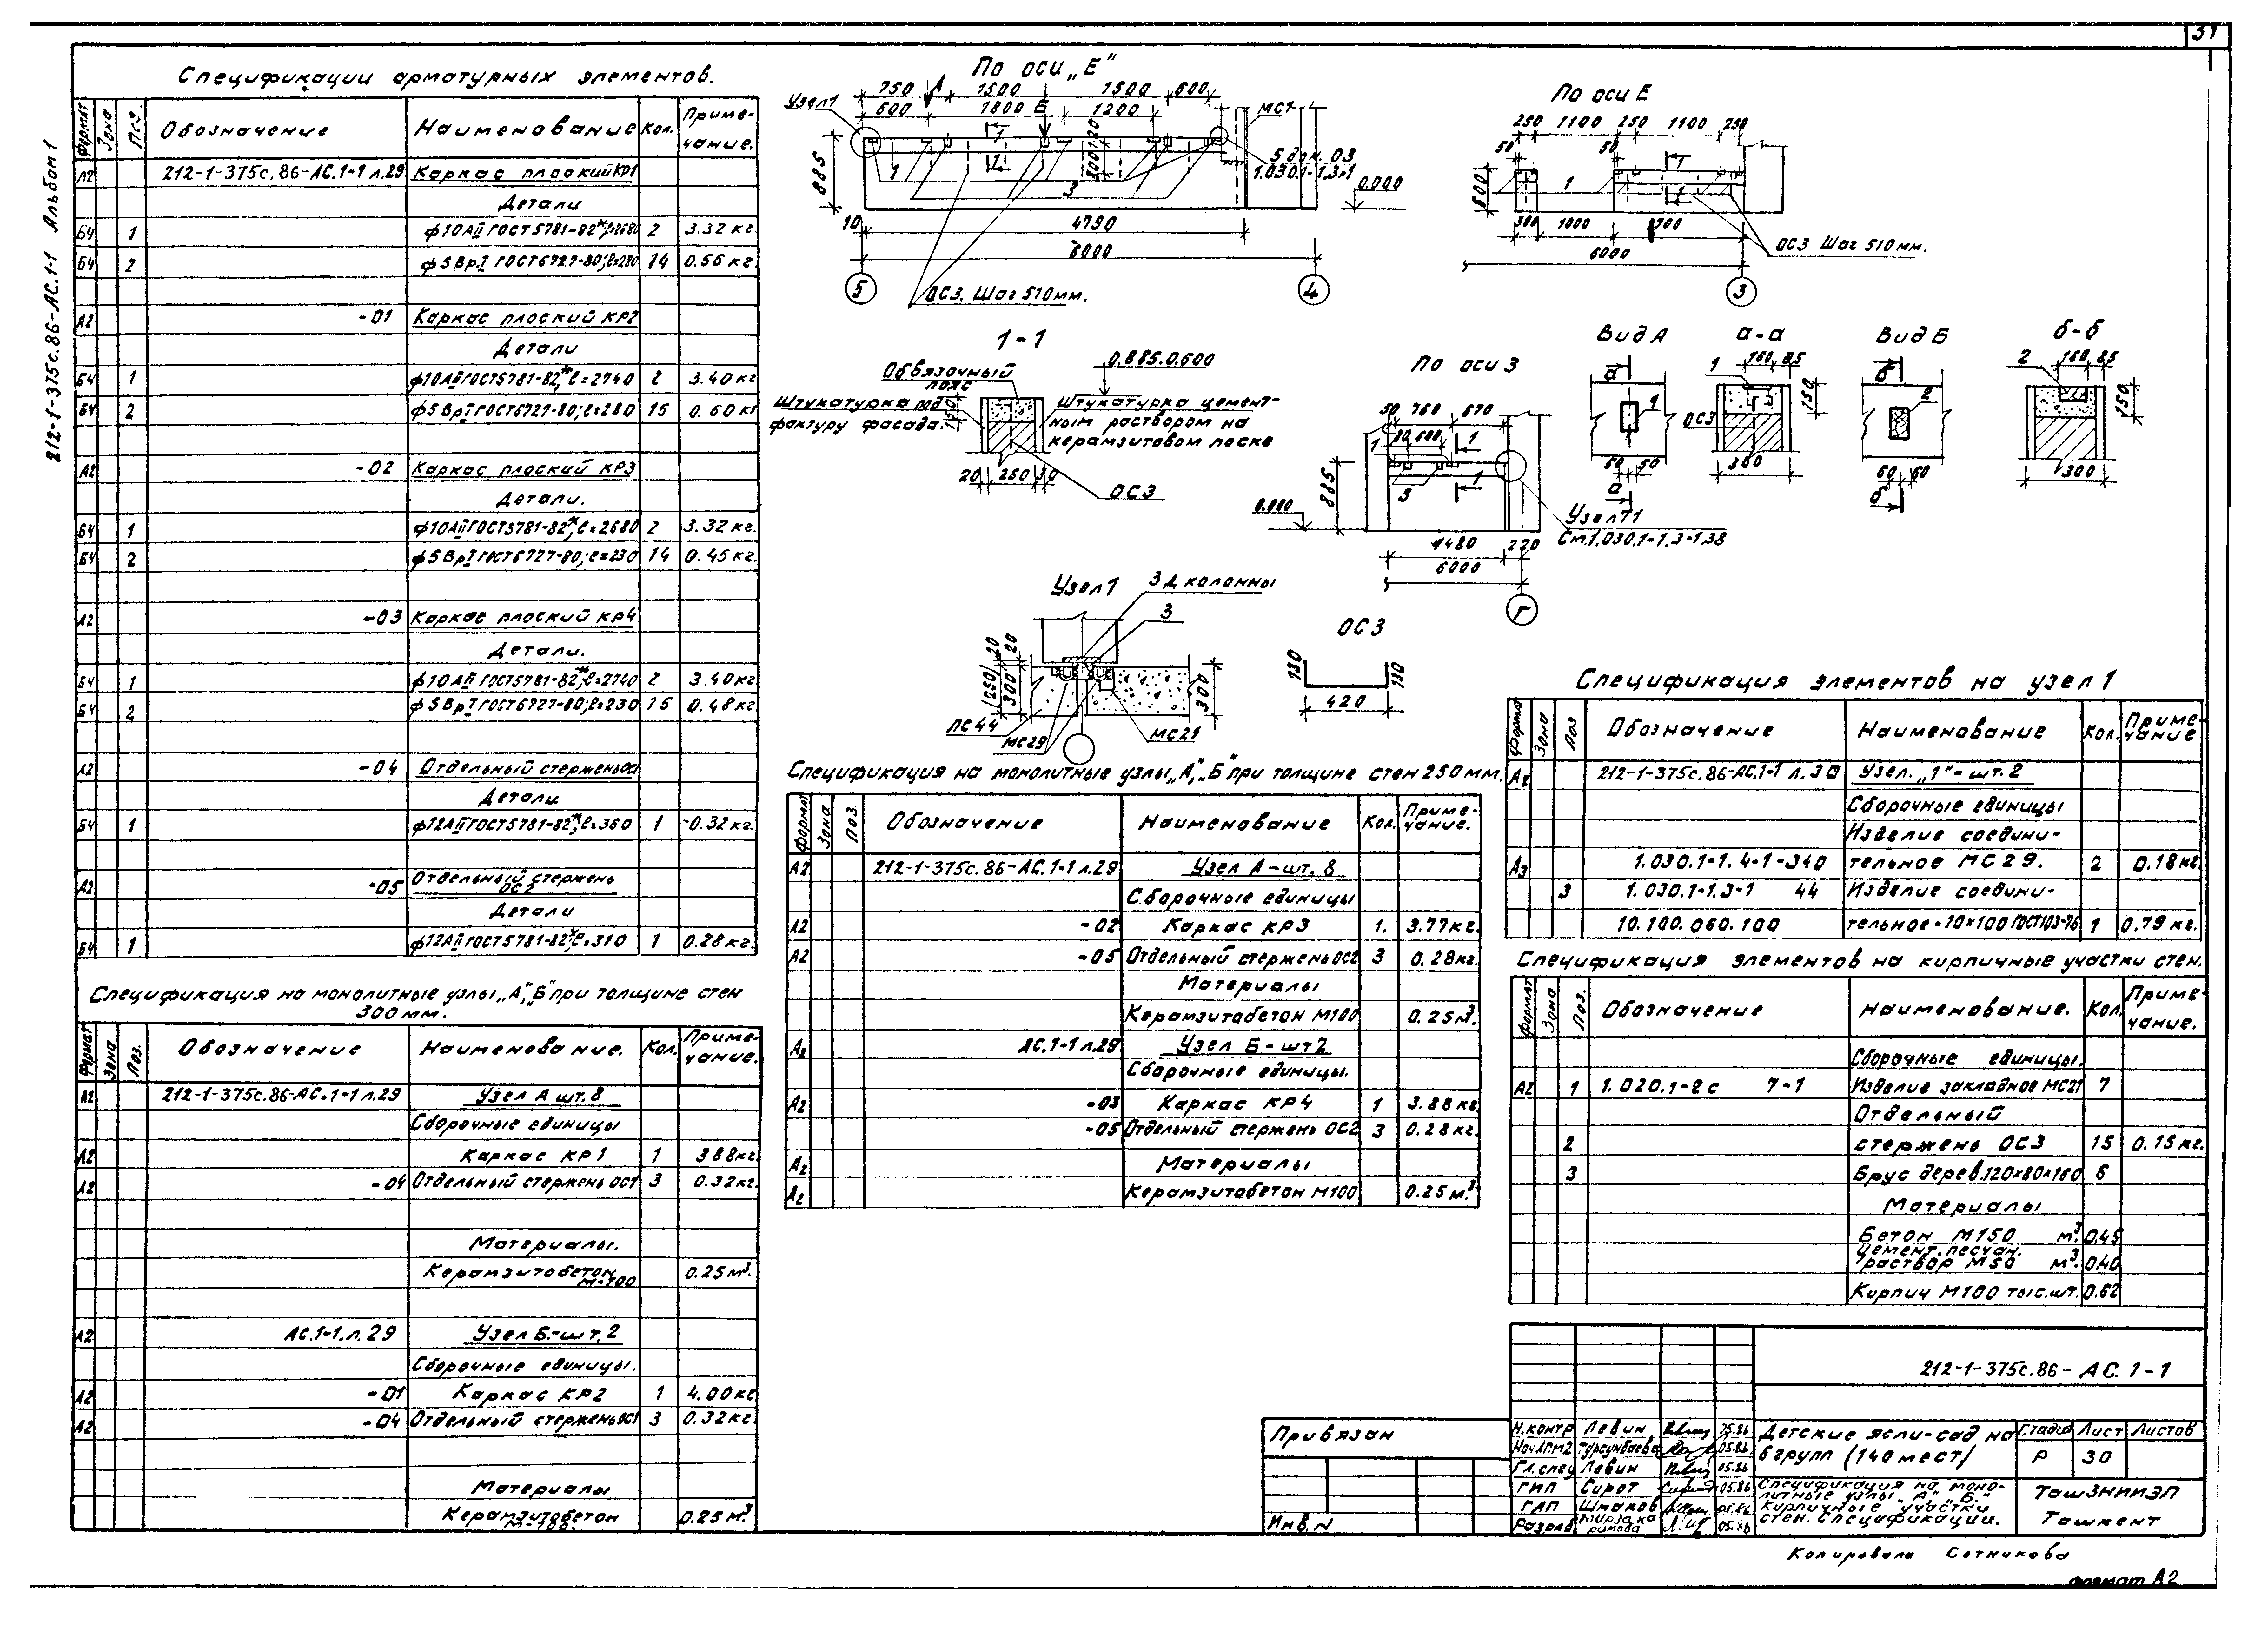 31
212-1-375с.86-АС.1-1 Альбом 1
Спецификации арматурных элементов.
Формат Зона Поз. Обозначение Наименование Кол. Примечание.
А2 212-1-375с.86-АС.1-1 л.29 Каркас плоский КР1
Детали
БЧ 1 ф10АII ГОСТ5781-82*, l=2680 2 3.32 кг.
БЧ 2 ф5ВрI ГОСТ6727-80; l=280 14 0.56 кг.
А2 -01 Каркас плоский КР2
Детали
БЧ 1 ф10АII ГОСТ5781-82*, l=2740 2 3.40 кг
БЧ 2 ф5ВрI ГОСТ6727-80; l=280 15 0.60 кг
А2 -02 Каркас плоский КР3
Детали.
БЧ 1 ф10АII ГОСТ5781-82*, l=2680 2 3.32 кг.
БЧ 2 ф5ВрI ГОСТ6727-80; l=230 14 0.45 кг.
А2 -03 Каркас плоский КР4
Детали.
БЧ 1 ф10АII ГОСТ5781-82*, l=2740 2 3.40 кг
БЧ 2 ф5ВрI ГОСТ6727-80; l=230 15 0.48 кг.
А2 -04 Отдельный стержень ОС1
Детали
БЧ 1 ф12АII ГОСТ5781-82*, l=360 1 0.32 кг.
А2 -05 Отдельный стержень ОС2
Детали
БЧ 1 ф12АII ГОСТ5781-82*, l=310 1 0.28 кг.
Спецификация на монолитные узлы „А", „Б" при толщине стен
300 мм.
Формат Зона Поз. Обозначение Наименование. Кол. Примечание.
А2 212-1-375с.86-АС.1-1 л.29 Узел А шт. 8
Сборочные единицы
А2 Каркас КР1 1 3.88 кг.
А2 -04 Отдельный стержень ОС1 3 0.32 кг.
Материалы.
Керамзитобетон М-100 0.25 м³.
А2 АС.1-1.л.29 Узел Б.-шт. 2
Сборочные единицы.
А2 -01 Каркас КР2 1 4.00 кг
А2 -04 Отдельный стержень ОС1 3 0.32 кг.
Материалы
Керамзитобетон М-100. 0.25 м³.
По оси „Е"
750 А 1500 1500 600
600 1800 Б 1200
Узел 1
МС1
885
1 1 1 3
300 120
5 док. 03
1.030.1-1.3-1
0.000
10 4790
6000
5 4
ОС3. Шаг 510 мм.
По оси Е
250 1100 250 1100 250
50 50
600
1 1 1
300 1000 1700
6000
3
ОС3 Шаг 510 мм.
1-1
0.885.0.600
Обвязочный
пояс
Штукатурка под
фактуру фасада.
150
Штукатурка цемент-
ным раствором на
керамзитовом песке
20 250 30
ОС3
По оси 3
50 760 670
80 600
1 1 1
885
3
0.000
Узел 71
См.1.030.1-1.3-1.38
1480 220
6000
Г
Вид А
а
1
50 50
а
а-а
1 160 85
150
ОС3
300
Вид Б
б
2
60 60
б
б-б
2 160 85
150
300
Узел 1
3 д. колонны
3
20 20
(250) 300
300
ПС44
МС29
МС21
ОС3
130 130
420
Спецификация на монолитные узлы „А", „Б" при толщине стен 250 мм.
Формат Зона Поз. Обозначение Наименование Кол. Примечание.
А2 212-1-375с.86-АС.1-1 л.29 Узел А-шт. 8
Сборочные единицы
А2 -02 Каркас КР3 1. 3.77 кг.
А2 -05 Отдельный стержень ОС2 3 0.28 кг.
Материалы
Керамзитобетон М100 0.25 м³.
А2 АС.1-1 л.29 Узел Б-шт 2
Сборочные единицы.
А2 -03 Каркас КР4 1 3.88 кг
-05 Отдельный стержень ОС2 3 0.28 кг.
А2 Материалы
А2 Керамзитобетон М100 0.25 м³.
Спецификация элементов на узел 1
Формат Зона Поз Обозначение Наименование Кол. Примечание
А2 212-1-375с.86-АС.1-1 л.30 Узел. „1"-шт. 2
Сборочные единицы
Изделие соедини-
А3 1.030.1-1.4-1-340 тельное МС29. 2 0.18 кг.
3 1.030.1-1.3-1 44 Изделие соедини-
10.100.060.100 тельное-10×100 ГОСТ103-76 1 0.79 кг.
Спецификация элементов на кирпичные участки стен.
Формат Зона Поз. Обозначение Наименование. Кол. Примечание.
Сборочные единицы.
А2 1 1.020.1-2с 7-1 Изделие закладное МС21 7
Отдельный
2 стержень ОС3 15 0.15 кг.
3 Брус дерев.120×80×160 6
Материалы
Бетон М150 м³. 0.45
Цемент. песчан.
раствор М50 м³. 0.40
Кирпич М100 тыс.шт. 0.62
212-1-375с.86- АС. 1-1
Привязан
Инв. N
Н.контр Левин 05.86
Нач.АПМ2 Турсунбаева 05.86
Гл.спец Левин 05.86
ГИП Сирот 05.86
ГАП Шмаков 05.86
Разраб Мирзакаримова 05.86
Детские ясли-сад на
6 групп (140 мест)
Стадия Лист Листов
Р 30
Спецификация на моно-
литные узлы „А", „Б".
Кирпичные участки
стен. Спецификации.
ТашЗНИИЭП
Ташкент
Копировала Сотникова
Формат А2